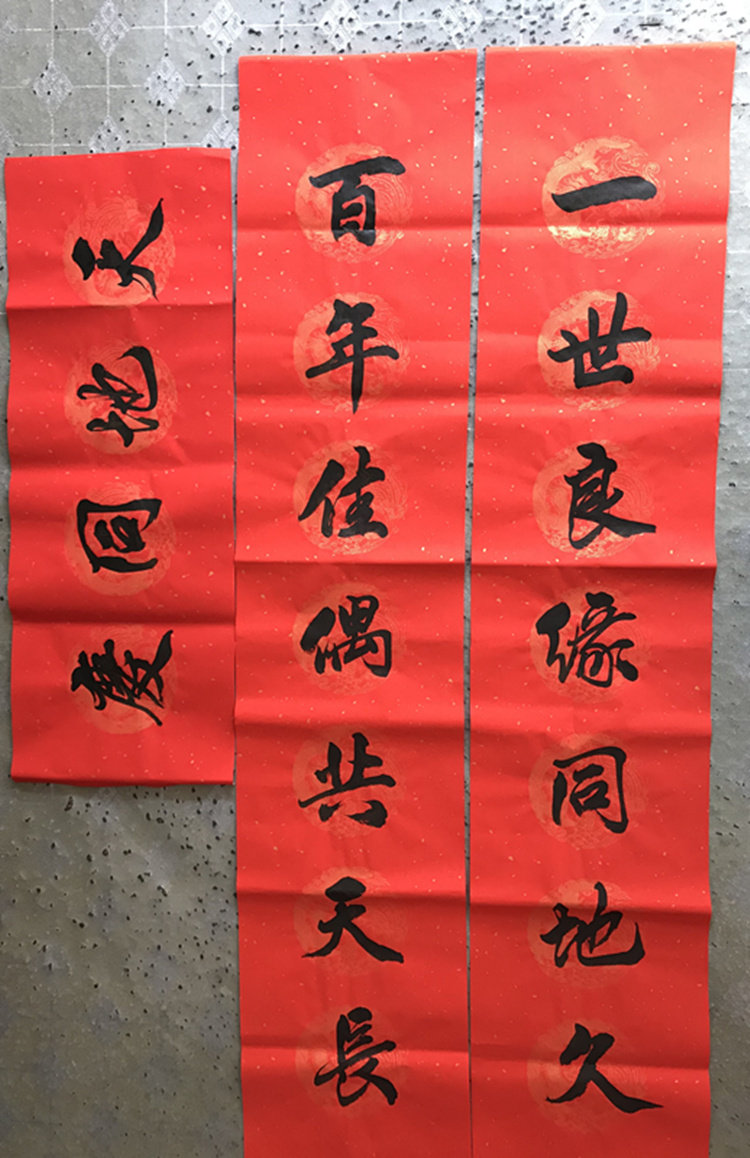 一世良缘同地久
百年佳偶共天長
天地同慶